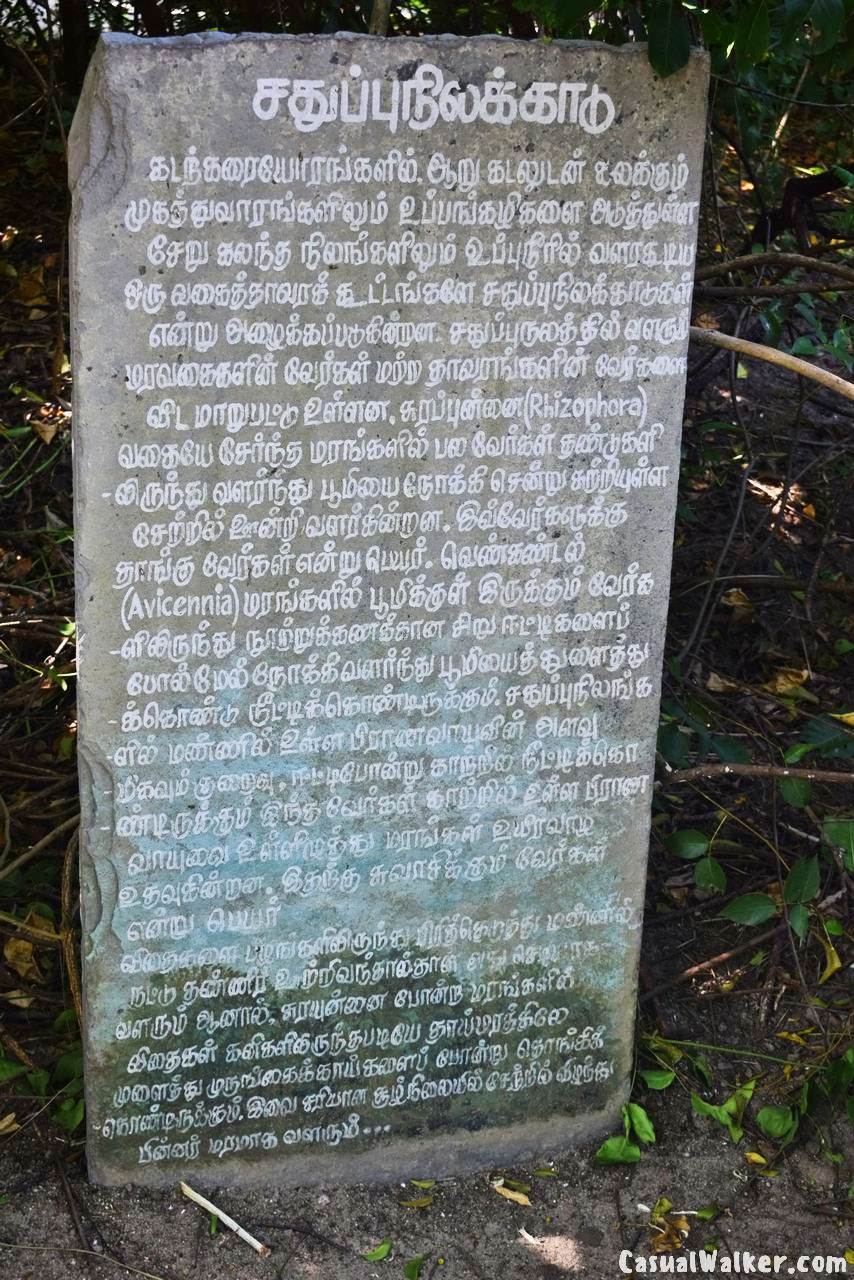 சதுப்புநிலக்காடு
கடற்கரையோரங்களில், ஆறு கடலுடன் கலக்கும்
முகத்துவாரங்களிலும் உப்பங்கழிகளை அடுத்துள்ள
சேறு கலந்த நிலங்களிலும் உப்புநீரில் வளரகூடிய
ஒரு வகைத்தாவரக் கூட்டங்களே சதுப்புநிலக்காடுகள்
என்று அழைக்கப்படுகின்றன. சதுப்புநிலத்தில் வளரும்
மரவகைகளின் வேர்கள் மற்ற தாவரங்களின் வேர்களை
விட மாறுபட்டு உள்ளன, சுரப்புன்னை(Rhizophora)
வகையே சேர்ந்த மரங்களில் பல வேர்கள் தண்டுகளி
-லிருந்து வளர்ந்து பூமியை நோக்கி சென்று சுற்றியுள்ள
சேற்றில் ஊன்றி வளர்கின்றன. இவ்வேர்களுக்கு
தாங்கு வேர்கள் என்று பெயர். வெண்கண்டல்
(Avicennia) மரங்களில் பூமிக்குள் இருக்கும் வேர்க
-ளிலிருந்து நூற்றுக்கணக்கான சிறு ஈட்டிகளைப்
போல் மேல் நோக்கி வளர்ந்து பூமியைத் துளைத்து
-க்கொண்டு நீட்டிக்கொண்டிருக்கும். சதுப்புநிலங்க
-ளில் மண்ணில் உள்ள பிராணவாயுவின் அளவு
-மிகவும் குறைவு. ஈட்டிபோன்று காற்றில் நீட்டிக்கொ
-ண்டிருக்கும் இந்த வேர்கள் காற்றில் உள்ள பிராண
வாயுவை உள்ளிழுத்து மரங்கள் உயிர்வாழ
உதவுகின்றன. இதற்கு சுவாசிக்கும் வேர்கள்
என்று பெயர்
விதைகளை பழங்களிலிருந்து பிரித்தெடுத்து மண்ணில்
நட்டு தண்ணீர் ஊற்றிவந்தால்தான் அது செடியாக
வளரும் ஆனால், சுரபுன்னை போன்ற மரங்களில்
விதைகள் கனிகளிலிருந்தபடியே தாய்மரத்திலே
முளைத்து முருங்கைக்காய்களைப் போன்று தொங்கிக்
-கொண்டிருக்கும், இவை சரியான சூழ்நிலையில் சேற்றில் வீழ்ந்து
பின்னர் மரமாக வளரும்...
CasualWalker.com